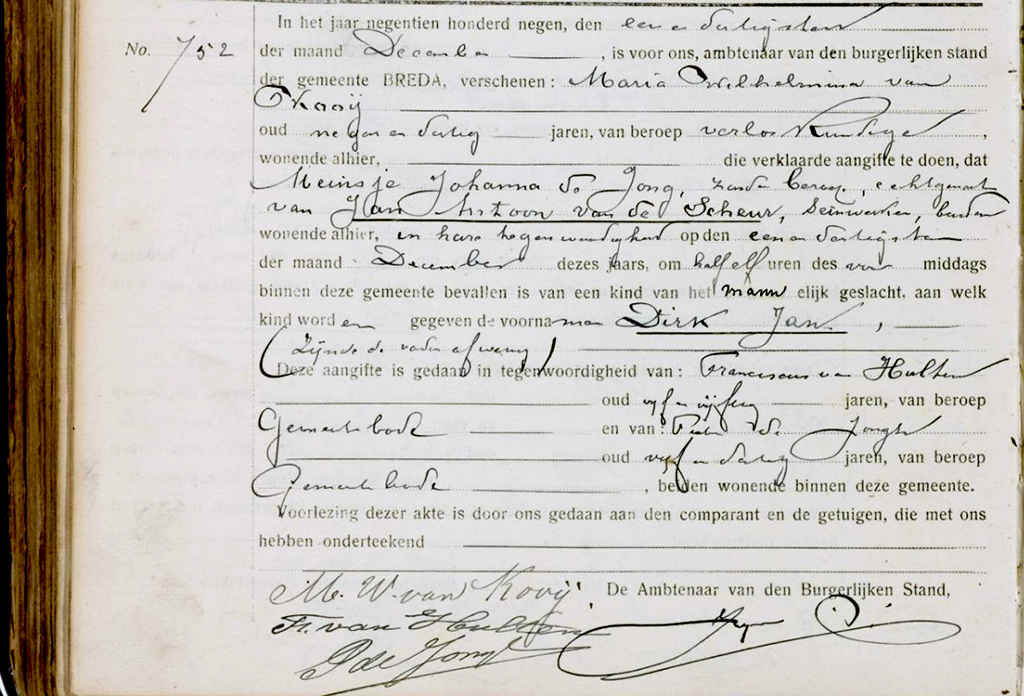 In het jaar negentien honderd negen, den een en dertigsten
No. 752
der maand December, is voor ons, ambtenaar van den burgerlijken stand
der gemeente BREDA, verschenen: Maria Wilhelmina van
Kooij
oud negen en dertig jaren, van beroep verloskundige,
wonende alhier, die verklaarde aangifte te doen, dat
Meinsje Johanna de Jong, zonder beroep, echtgenoote
van Jan Antoon van de Scheur, seinwerker, beiden
wonende alhier, in hare tegenwoordigheid op den een en dertigsten
der maand December dezes jaars, om half elf uren des voor middags
binnen deze gemeente bevallen is van een kind van het mannelijk geslacht, aan welk
kind worden gegeven de voornamen Dirk Jan,
(zijnde de vader afwezig)
Deze aangifte is gedaan in tegenwoordigheid van: Franciscus van Hulten
oud vijf en vijftig jaren, van beroep
Gemeentebode en van: Pieter de Jongh
oud vijf en dertig jaren, van beroep
Gemeentebode, beiden wonende binnen deze gemeente.
Voorlezing dezer akte is door ons gedaan aan den comparant en de getuigen, die met ons
hebben onderteekend
M. W. van Kooij. De Ambtenaar van den Burgerlijken Stand,
Fr. van Hulten
P de Jongh